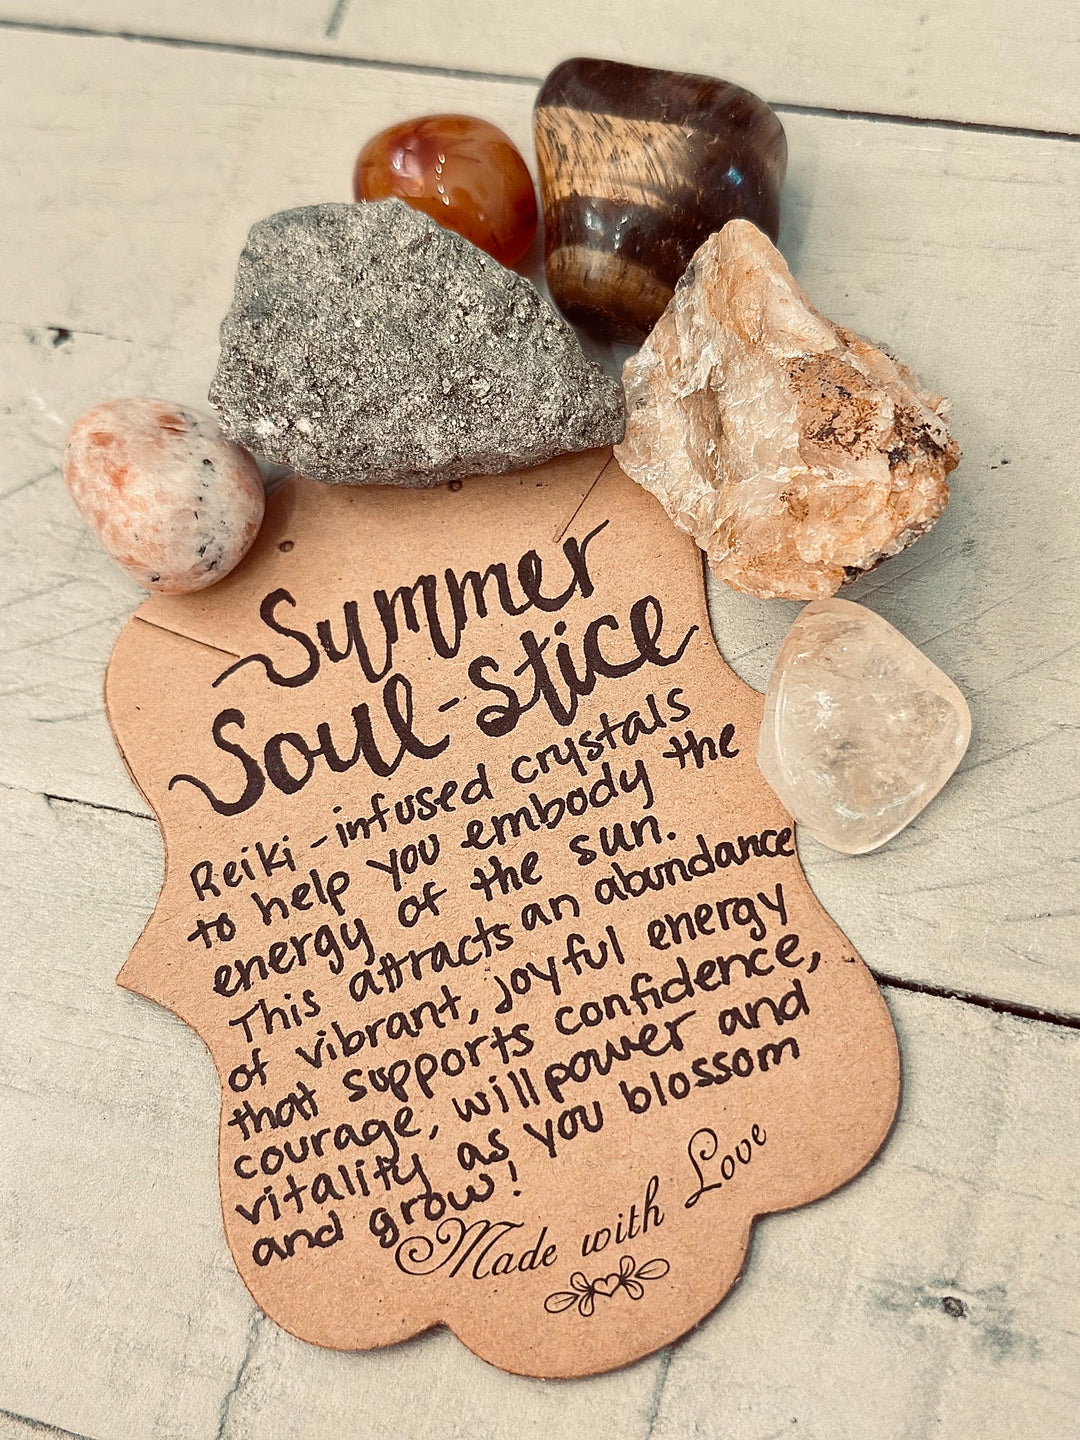 Summer
Soul-stice
Reiki-infused crystals
to help you embody the
energy of the sun.
This attracts an abundance
of vibrant, joyful energy
that supports confidence,
courage, willpower and
vitality as you blossom
and grow!
Made with Love